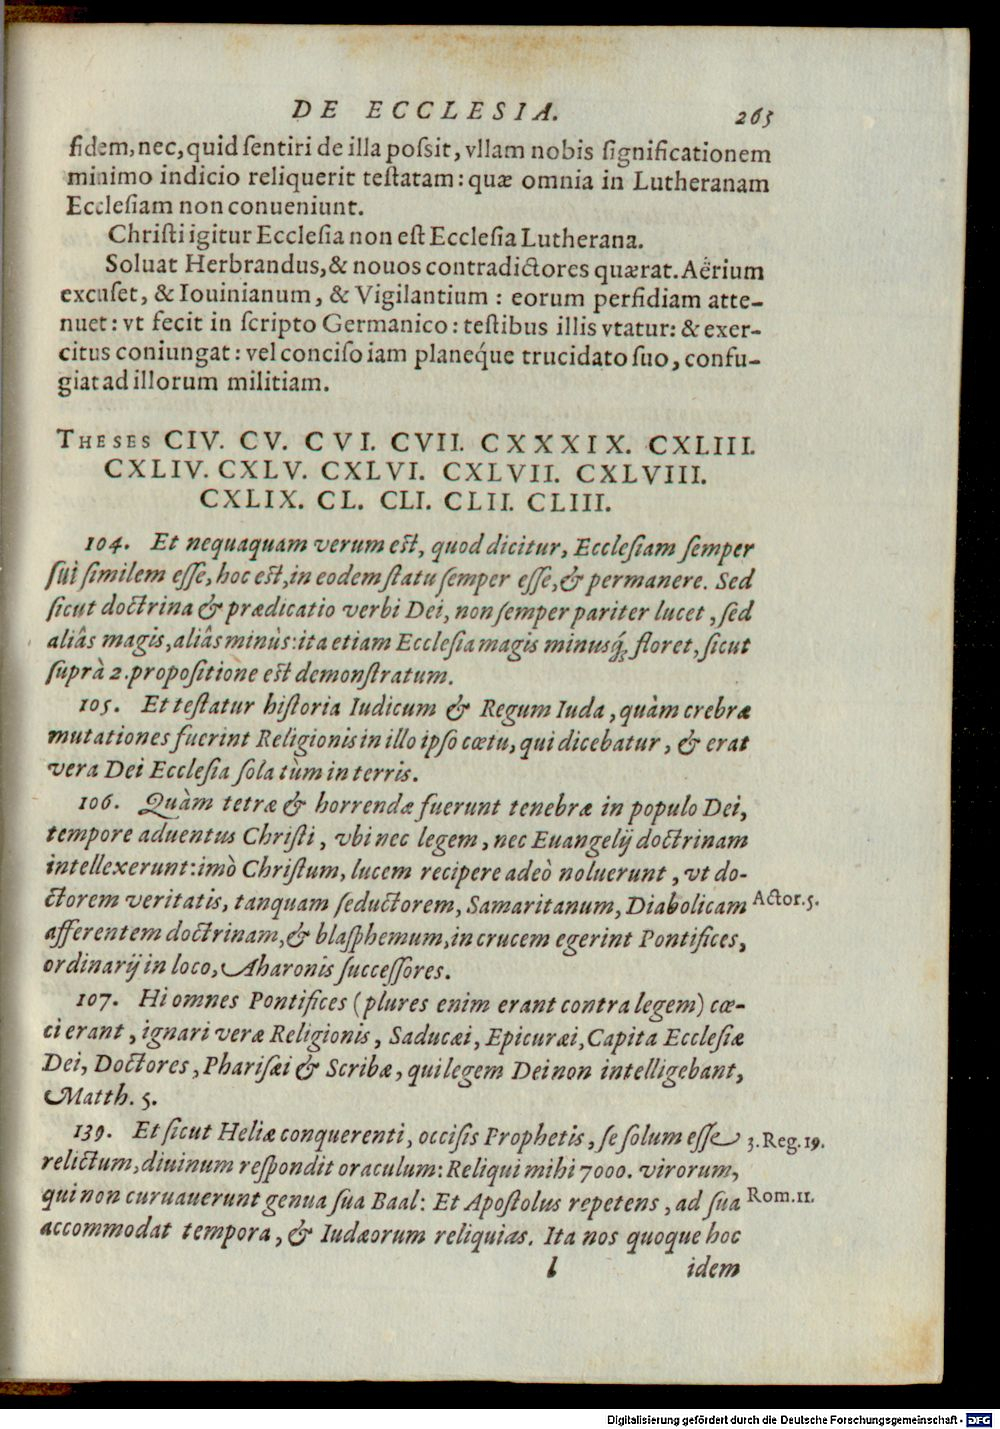 DE ECCLESIA. 265
fidem, nec, quid sentiri de illa possit, vllam nobis significationem
minimo indicio reliquerit testatam: quæ omnia in Lutheranam
Ecclesiam non conueniunt.
Christi igitur Ecclesia non est Ecclesia Lutherana.
Soluat Herbrandus, & nouos contradictores quærat. Aërium
excuset, & Iouinianum, & Vigilantium : eorum perfidiam atte-
nuet: vt fecit in scripto Germanico: testibus illis vtatur: & exer-
citus coniungat: vel conciso iam planeq́ue trucidato suo, confu-
giat ad illorum militiam.
THESES CIV. CV. CVI. CVII. CXXXIX. CXLIII.
CXLIV. CXLV. CXLVI. CXLVII. CXLVIII.
CXLIX. CL. CLI. CLII. CLIII.
104. Et nequaquam verum est, quod dicitur, Ecclesiam semper
sui similem esse, hoc est, in eodem statu semper esse, & permanere. Sed
sicut doctrina & prædicatio verbi Dei, non semper pariter lucet, sed
aliâs magis, aliâs minùs: ita etiam Ecclesia magis minusq́; floret, sicut
suprà 2. propositione est demonstratum.
105. Et testatur historia Iudicum & Regum Iuda, quàm crebræ
mutationes fuerint Religionis in illo ipso cœtu, qui dicebatur, & erat
vera Dei Ecclesia sola tùm in terris.
106. Quàm tetræ & horrendæ fuerunt tenebræ in populo Dei,
tempore aduentus Christi, vbi nec legem, nec Euangelij doctrinam
intellexerunt: imò Christum, lucem recipere adeò noluerunt, vt do-
ctorem veritatis, tanquam seductorem, Samaritanum, Diabolicam Actor. 5.
afferentem doctrinam, & blasphemum, in crucem egerint Pontifices,
ordinarij in loco, Aharonis successores.
107. Hi omnes Pontifices (plures enim erant contra legem) cœ-
ci erant, ignari veræ Religionis, Saducæi, Epicuræi, Capita Ecclesiæ
Dei, Doctores, Pharisæi & Scribæ, qui legem Dei non intelligebant,
Matth. 5.
139. Et sicut Heliæ conquerenti, occisis Prophetis, se solum esse 3. Reg. 19.
relictum, diuinum respondit oraculum: Reliqui mihi 7000. virorum,
qui non curuauerunt genua sua Baal: Et Apostolus repetens, ad sua Rom. 11.
accommodat tempora, & Iudæorum reliquias. Ita nos quoque hoc
l idem
Digitalisierung gefördert durch die Deutsche Forschungsgemeinschaft - DFG